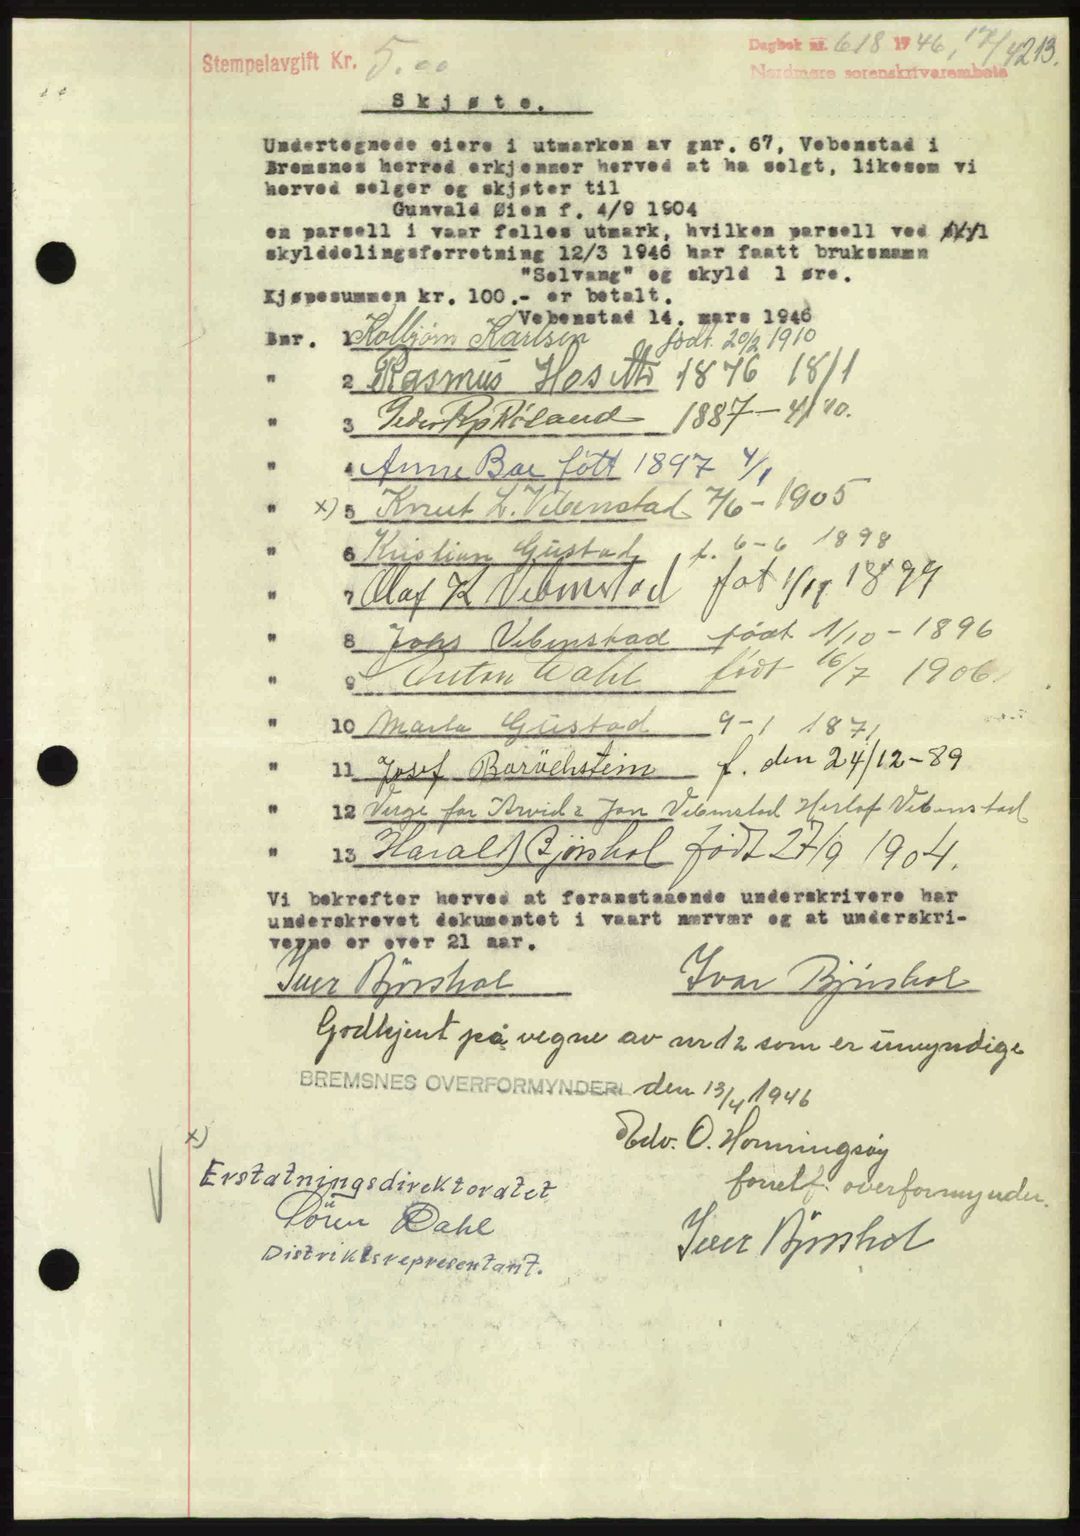 Stempelavgift Kr. 5.00
Dagbok nr. 618 1946, 17/4 213.
Nordmøre sorenskriverembete
Skjøte.
Undertegnede eiere i utmarken av gnr. 67, Vebenstad i
Bremsnes herred erkjenner herved at ha solgt, likesom vi
herved selger og skjøter til
Gunvald Øien f. 4/9 1904
en parsell i vaar felles utmark, hvilken parsell ved
skylddelingsforretning 12/3 1946 har faatt bruksnamn
"Solvang" og skyld 1 øre.
Kjøpesummen kr. 100.- er betalt.
Vebenstad 14. mars 1946
Bnr. 1 Kolbjörn Karlsen født 20/2 1910
" 2 Rasmus Hoseth 1876 18/1
" 3 Peder 1887 -
" 4 Anne Boe fött 1897 4/1
" x) 5 Knut L. Vebenstad 7/6 - 1905
" 6 Kristian Gustad f. 6-6 1898
" 7 Olaf K Vebenstad föt 1899
" 8 Johs Vebenstad födt 1/10 - 1896
" 9 Anton Dahl født 16/7 1906
" 10 Marta Gustad 9-1 1871
" 11 Josef f. den 24/12-89
" 12 Verge for Arvid & Jon Vebenstad Herlof Vebenstad
" 13 Harald Bjørshol født 27/9 1904.
Vi bekrefter herved at foranstaaende underskrivere har
underskrevet dokumentet i vaart nærvær og at underskri-
verne er over 21 aar.
Iver Bjørshol Ivar Bjørshol
Godkjent på vegne av nr 12 som er umyndige
BREMSNES OVERFORMYNDERI den 13/4 1946
Edv. O. Honningsøy
forrett. overformynder.
Iver Bjørshol
x)
Erstatningsdirektoratet
Sören Dahl
Distriktsrepresentant.